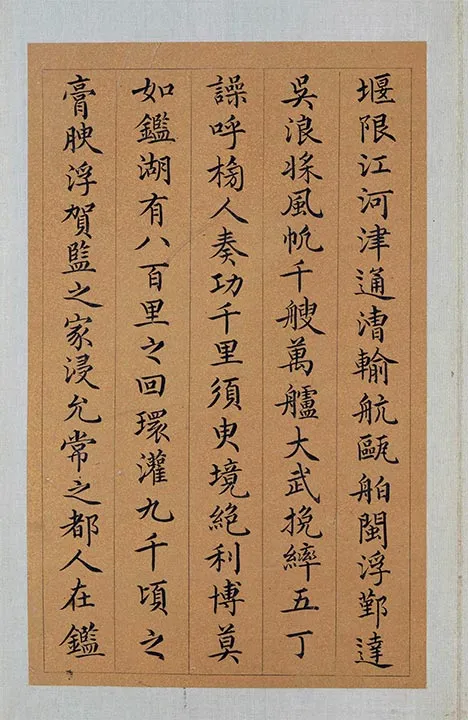 堰限江河津通漕輸航甌舶閩浮鄞達
吳浪槳風帆千艘萬艫大武挽繂五丁
譟呼榜人奏功千里須臾境絕利博莫
如鑑湖有八百里之回環灌九千頃之
膏腴浮賀監之家浸允常之都人在鑑